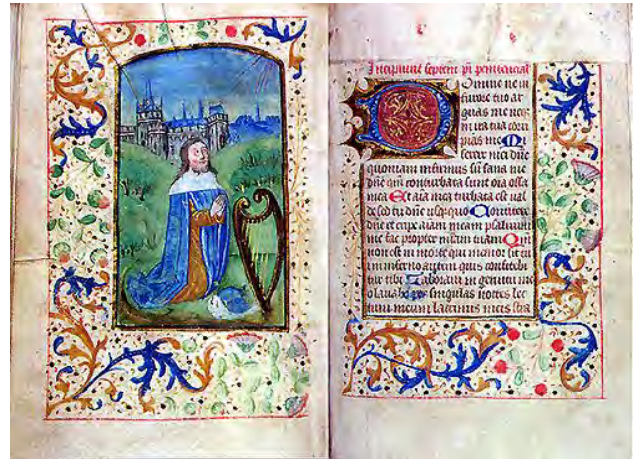 Incipiunt septem pĩ penitencial
Domine ne in
furore tuo ar
guas me neq
in ira tua corri
pias me Mi
serere mei dñe
quoniam infirmus sũ sana me
dñe qm̃ conturbata sunt oĩa ossa
mea Et aĩa mea turbata est val
de sed tu dñe usquequo Convertere
dñe et eripe aĩam meam salvum
me fac propter miam tuam Qm̃
non est in morte qui memor sit tui
in inferno autem quis confitebi
tur tibi Laboravi in gemitu me
o lavabo per singulas noctes lec
tum meum lacrimis meis stra